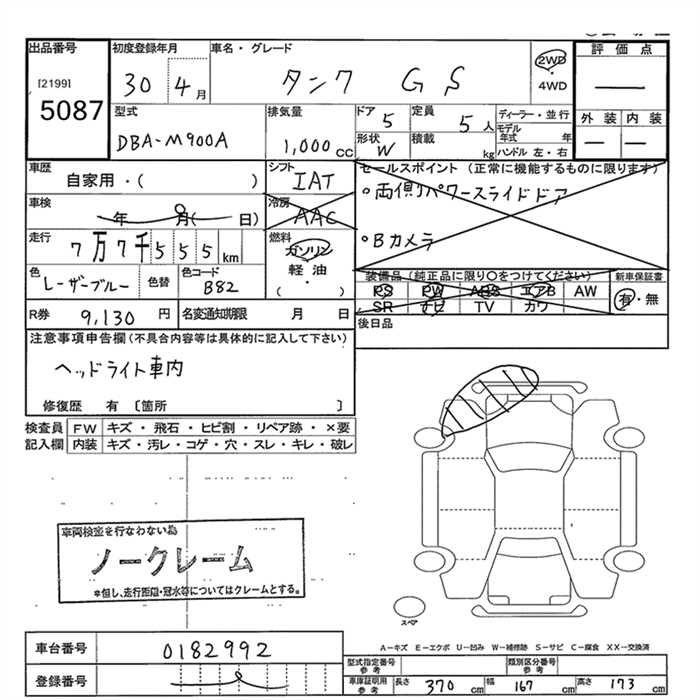 出品番号
[2199]
5087
初度登録年月
30 4月
車名・グレード
タンク GS
2WD
・
4WD
評価点
—
外装 内装
— —
型式
DBA-M900A
排気量
1,000 CC
ドア 5
形状 W
定員 5人
積載 kg
ディーラー・並行
モデル年式 年
ハンドル 左・右
車歴
自家用・( )
シフト
IAT
セールスポイント(正常に機能するものに限ります)
・両側パワースライドドア
・Bカメラ
車検
年 月( 日)
冷房
AAC
走行
7万7千555km
燃料
ガソリン
軽油
( ・ )
色
レーザーブルー
色替
色コード
B82
装備品(純正品に限り〇をつけてください)
PS PW ABS エアB AW
SR ナビ TV カワ
新車保証書
有・無
R券 9,130円
名変通知期限 月 日
後日品
注意事項申告欄(不具合内容等は具体的に記入して下さい)
ヘッドライト車内
修復歴 有 〔箇所 〕
検査員記入欄
FW キズ・飛石・ヒビ割・リペア跡・×要
内装 キズ・汚レ・コゲ・穴・スレ・キレ・破レ
車両検査を行なわない為
ノークレーム
*但し、走行距離・冠水等についてはクレームとする。
スペア
A-キズ E-エクボ U-凹み W-補修跡 S-サビ C-腐食 XX-交換済
車台番号 0182992
登録番号
型式指定番号参考
類別区分番号参考
車庫証明用参考 長さ 370cm 幅 167cm 高さ 173cm